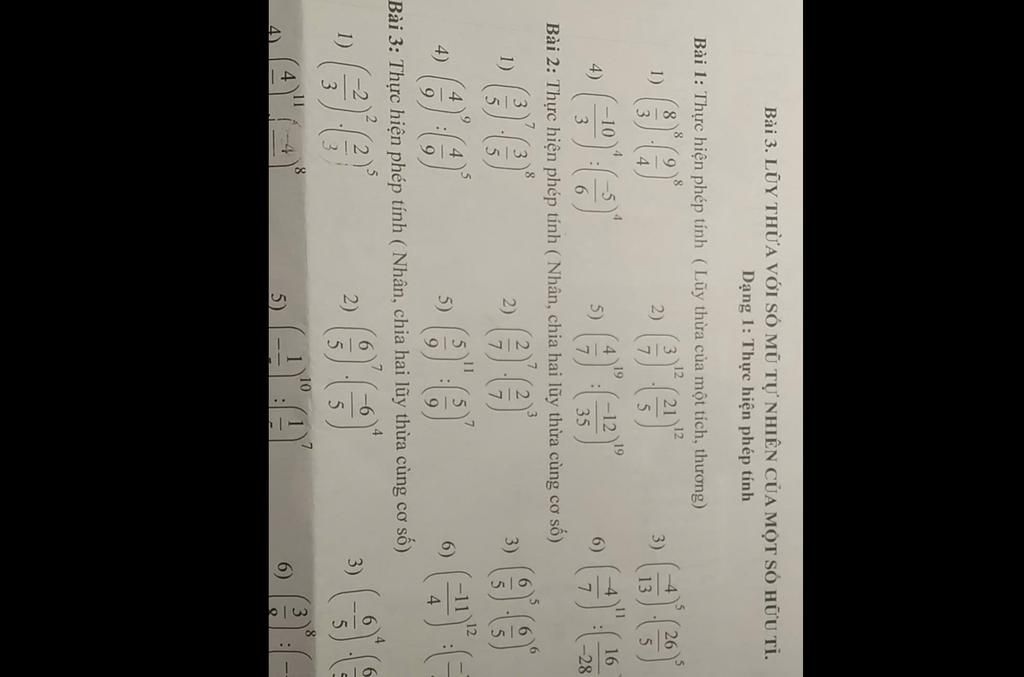 Bài 3. LŨY THỪA VỚI SỐ MŨ TỰ NHIÊN CỦA MỘT SỐ HỮU TỈ.
Dạng 1: Thực hiện phép tính
Bài 1: Thực hiện phép tính ( Lũy thừa của một tích, thương)
1) (8/3)^8 . (9/4)^8 2) (3/7)^12 . (21/5)^12 3) (-4/13)^5 . (26/5)^5
4) (-10/3)^4 : (-5/6)^4 5) (4/7)^19 : (-12/35)^19 6) (-4/7)^11 : (16/-28
Bài 2: Thực hiện phép tính ( Nhân, chia hai lũy thừa cùng cơ số)
1) (3/5)^7 . (3/5)^8 2) (2/7)^7 . (2/7)^3 3) (6/5)^5 . (6/5)^6
4) (4/9)^9 : (4/9)^5 5) (5/9)^11 : (5/9)^7 6) (-11/4)^12 : (-
Bài 3: Thực hiện phép tính ( Nhân, chia hai lũy thừa cùng cơ số)
1) (-2/3)^2 . (2/3)^5 2) (6/5)^7 . (-6/5)^4 3) (-6/5)^4 . (6/
4) (4/ )^11 . (-4/ )^8 5) (-1/ )^10 : (1/ )^7 6) (3/8)^8 : (-